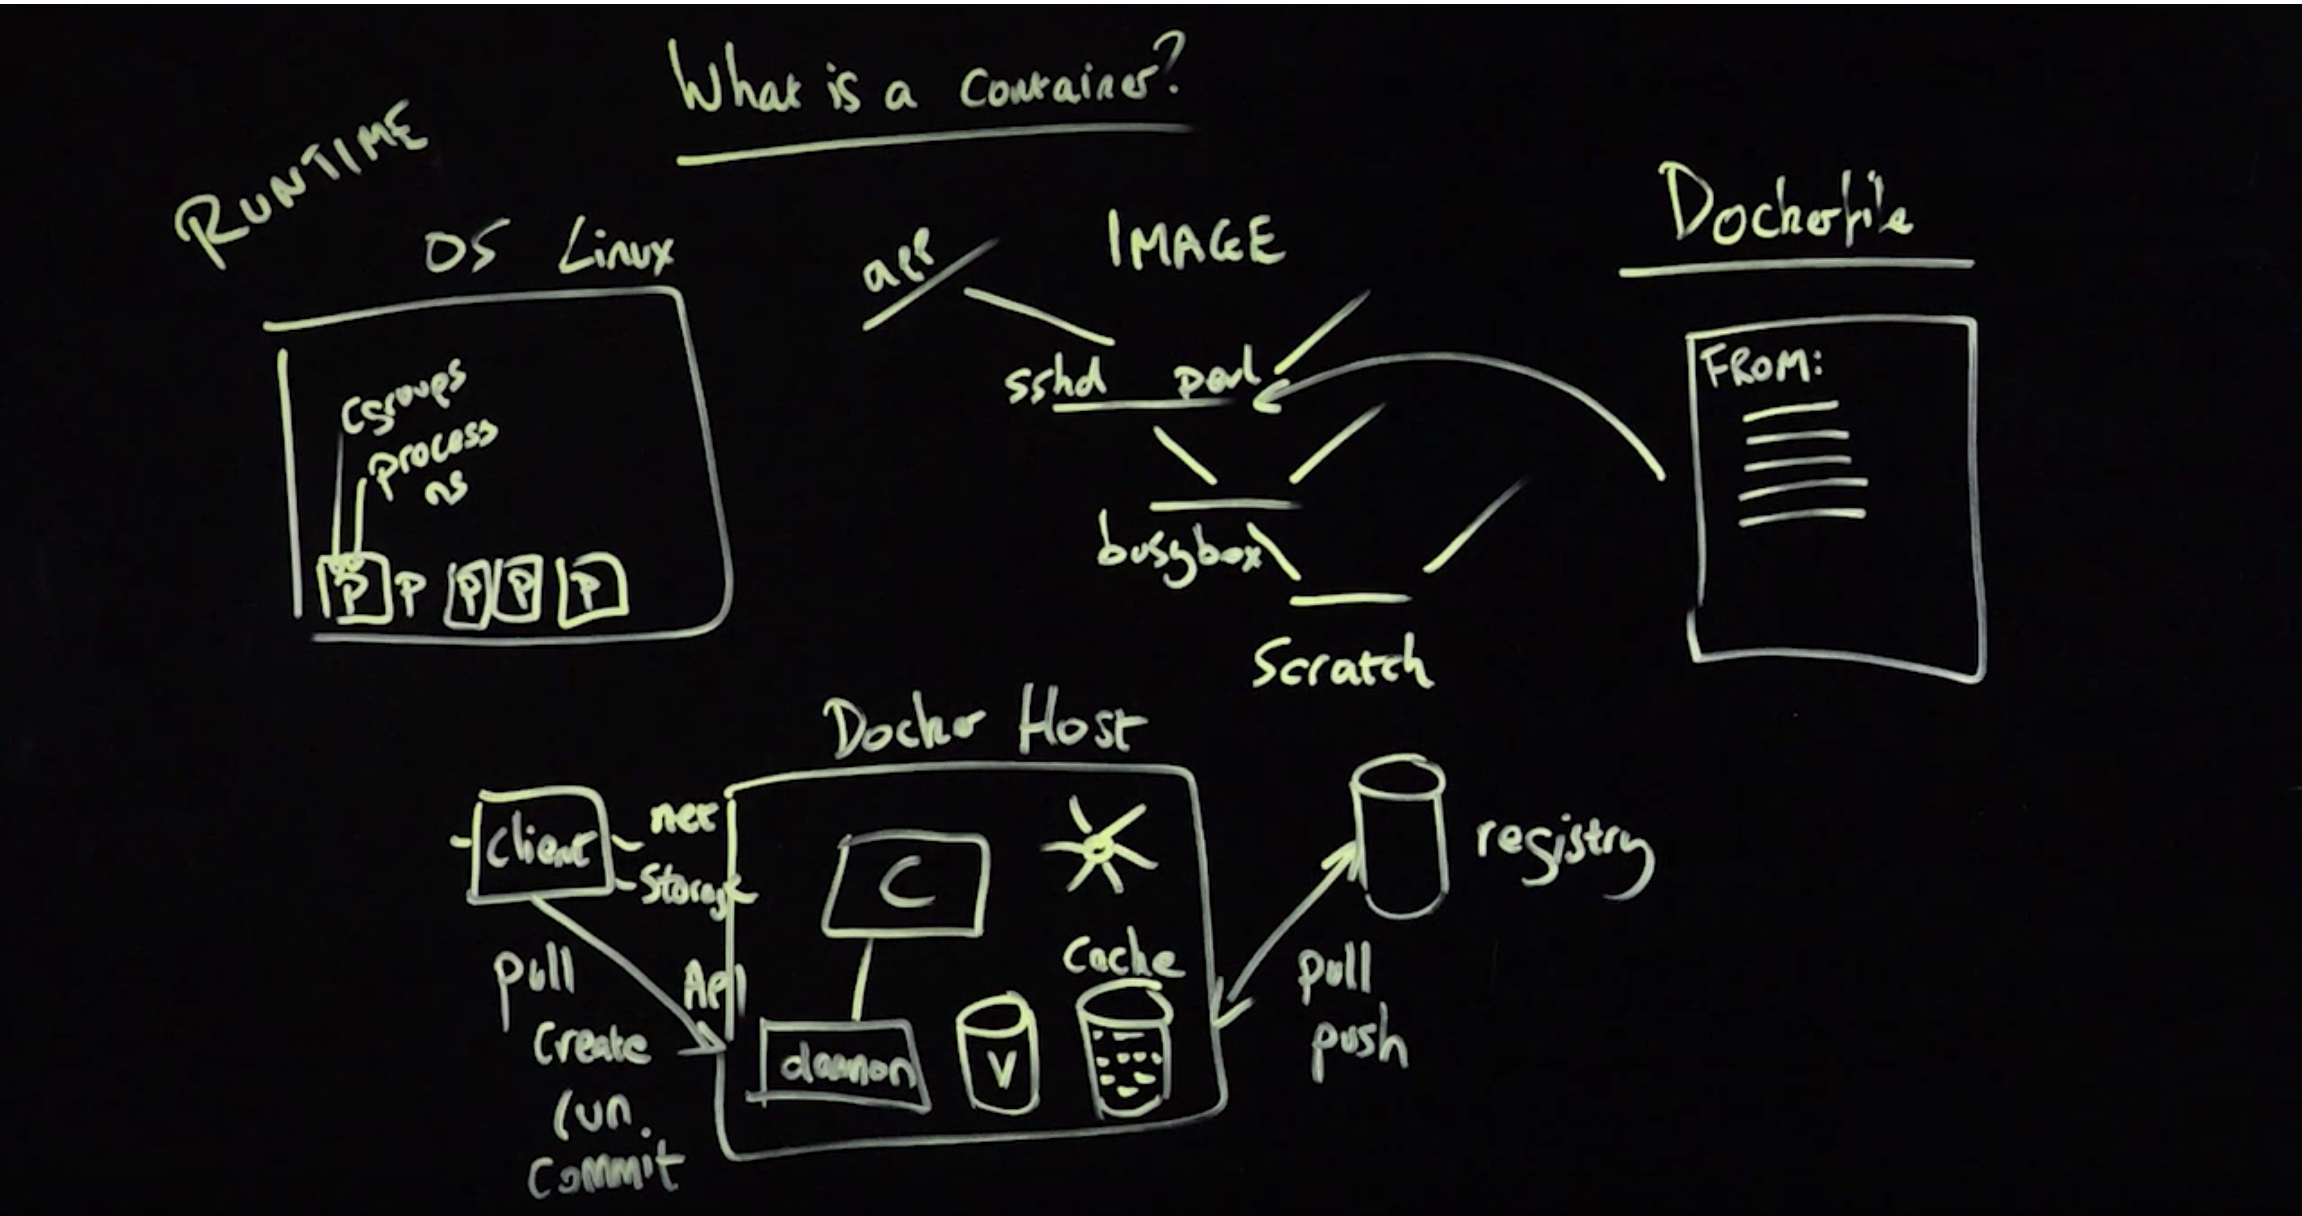 What is a container?
RUNTIME
OS Linux
Cgroups
process
ns
P P P P P
IMAGE
app
sshd perl
busybox
Scratch
Dockerfile
FROM:
Docker Host
client
net
Storage
API
pull
Create
run.
Commit
C
daemon
V
Cache
registry
pull
push